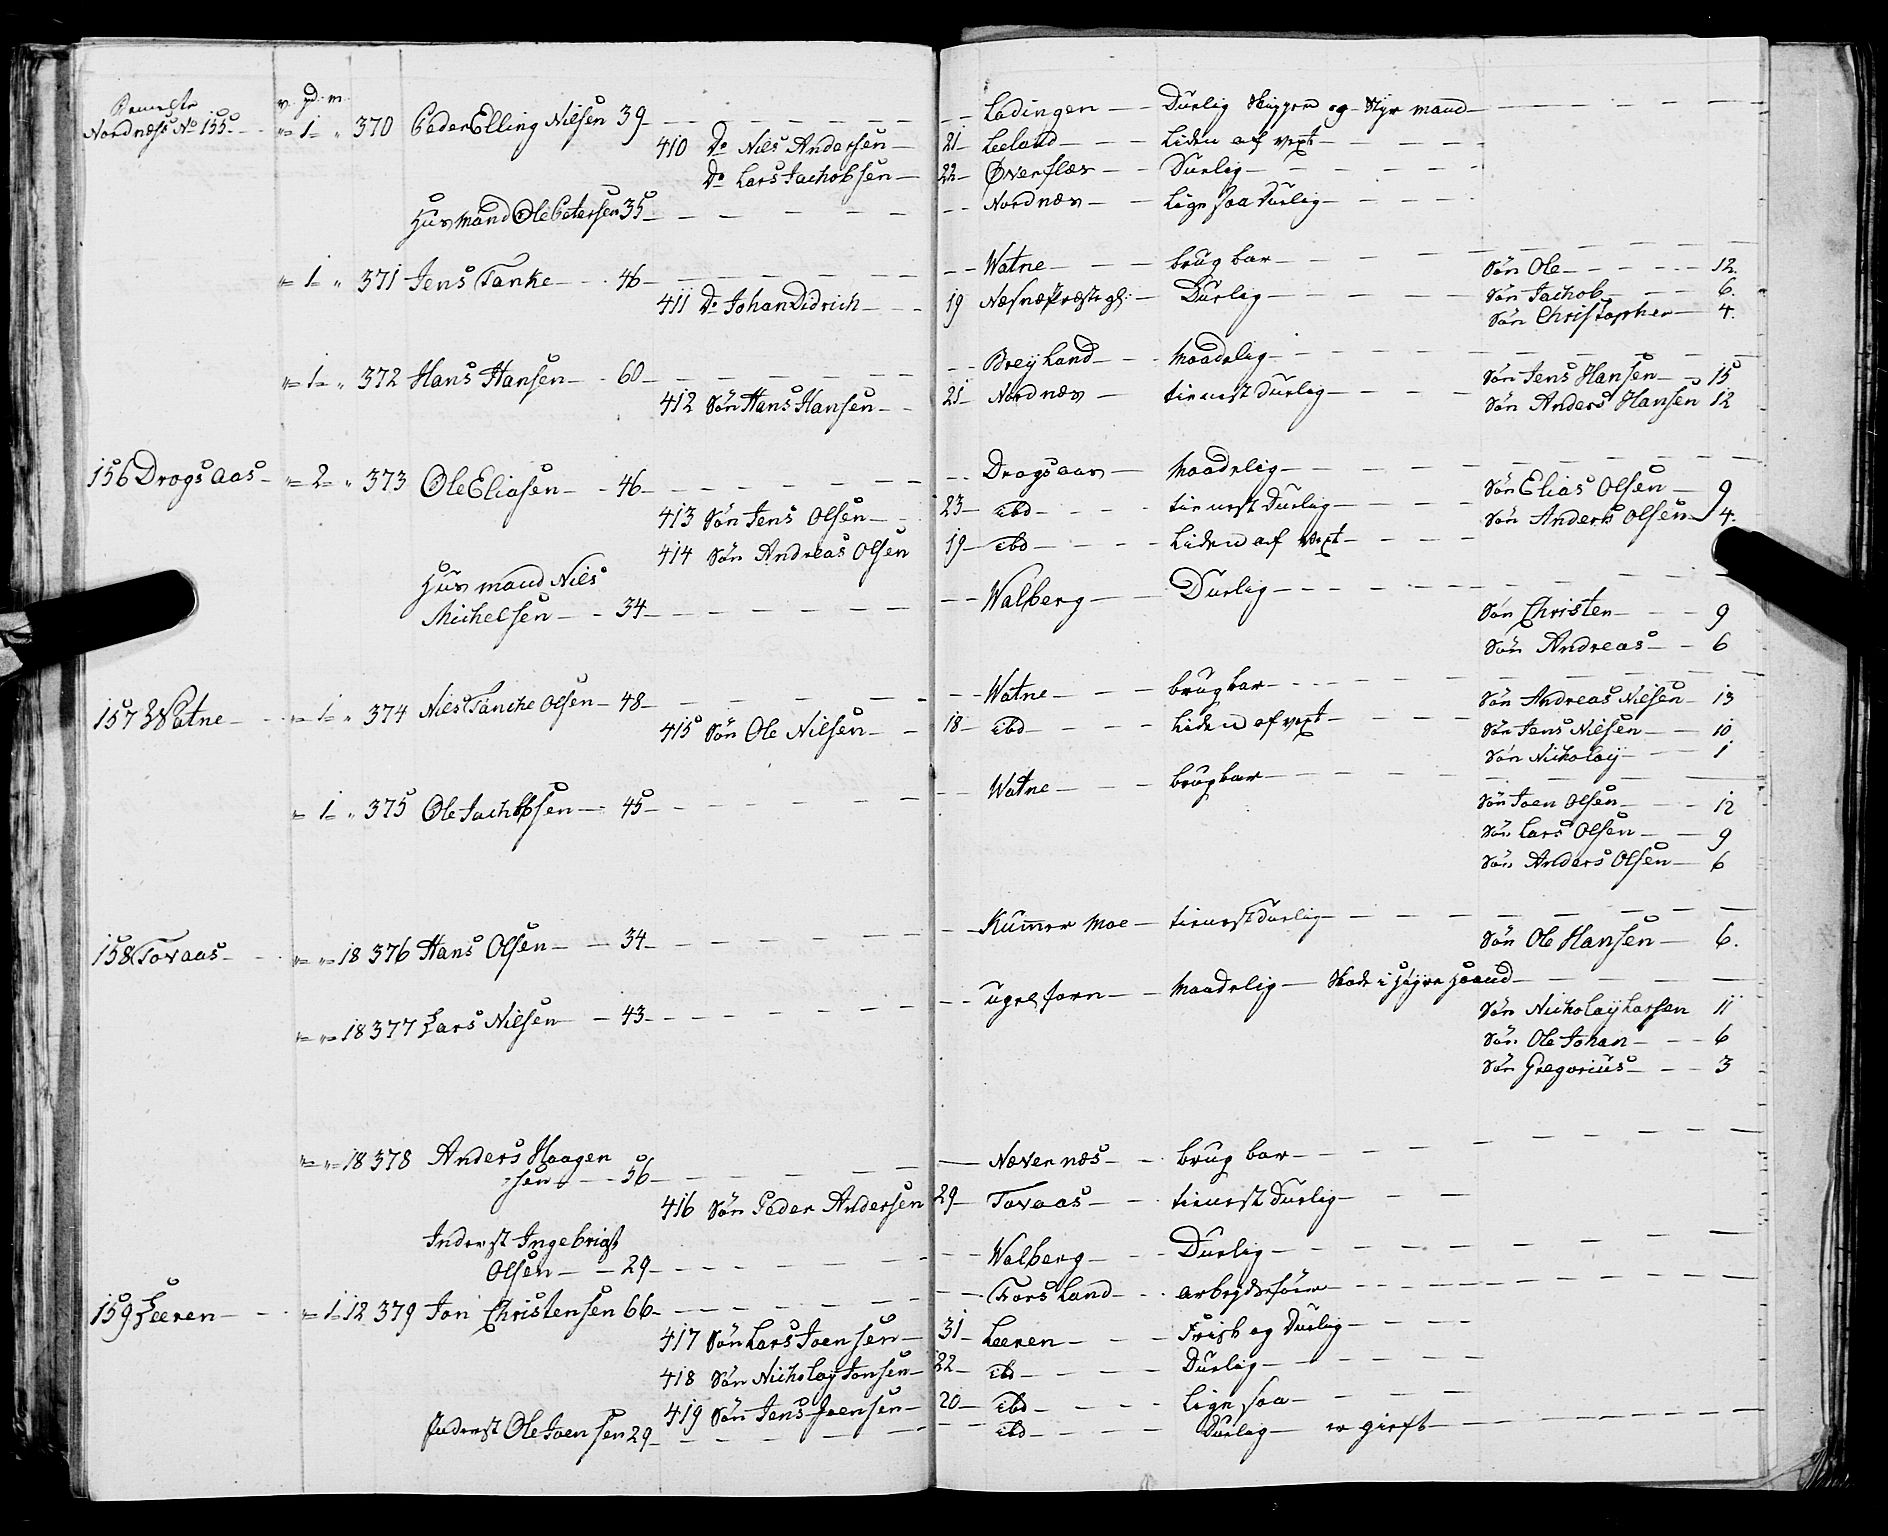 Bemelte v. pd. m.
Nordnæss No 155 " 1 " 370 Peder Elling Nilsen 39 Lødingen Durlig Skipper og Styrmand
410 Do Nils Andersen 21 Leeland Liden af vext
Do Lars Jachobsen 22 Øverflæs Durlig
Husmand Ole Petersen 35 Nordnæs Ligesaa Durlig
" 1 " 371 Jens Tanke 46 Watne brugbar
Søn Ole 12
411 Do Johan Didrich 19 Næsnæ Præstegl: Durlig Søn Jachob 6.
Søn Christopher 4.
" 1 " 372 Hans Hansen 60 Breyland Maadelig
Søn Jens Hansen 15
412 Søn Hans Hansen 21 Nordnæs tienest Durlig Søn Anders Hansen 12
156 Drogsaas " 2 " 373 Ole Eliasen 46 Drogsaas Maadelig
Søn Elias Olsen 9
413 Søn Jens Olsen 23 ibd tienest Durlig Søn Anders Olsen 4.
414 Søn Andreas Olsen 19 ibd Liden af vext
Husmand Nils
Michelsen 34 Walberg Durlig
Søn Christen 9
Søn Andreas 6
157 Watne " 1 " 374 Niels Tanche Olsen 48 Watne brugbar
Søn Andreas Nilsen 13
415 Søn Ole Nilsen 18 ibd Liden af vext Søn Jens Nilsen 10
Søn Nicholay 1
" 1 " 375 Ole Jachobsen 45 Watne brugbar
Søn Joen Olsen 12
Søn Lars Olsen 9
Søn Anders Olsen 6
158 Tovaas " " 18 376 Hans Olsen 34 Kummer Moe tienest Durlig
Søn Ole Hansen 6.
" " 18 377 Lars Nilsen 43 ugelfarn Maadelig Skade i Høyre Haand
Søn Nicholay Larsen 11
Søn Ole Johan 6
Søn Gregorius 3
" " 18 378 Anders Haagen
sen 56 Nævernæs brugbar
416 Søn Peder Andersen 29 Tovaas tienest Durlig
Inderst Ingebrigt
Olsen 29 Walberg Durlig
159 Leeren " 1 12 379 Jon Christensen 66 Forsland arbeydsfør
417 Søn Lars Joensen 31 Leeren Frisk og Durlig
418 Søn Nicholay Jonsen 22 ibd Durlig
419 Søn Jens Joensen 20 ibd Ligesaa
Inderst Ole Joensen 29 ibd Durlig er gieft